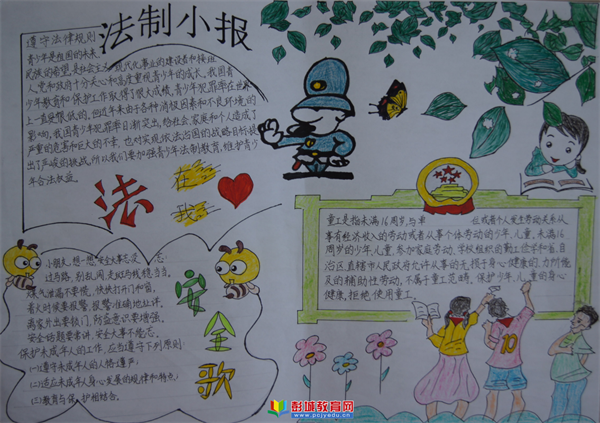 法制小报
遵守法律规则
青少年是祖国的未来,
民族的希望,是社会主义现代化事业的建设者和接班
人,党和政府十分关心和高度重视青少年的成长。我国青
少年教育和保护工作取得了很大成绩,青少年犯罪率在世界
上一直是很低的。但近年来由于各种消极因素和不良环境的
影响,我国青少年犯罪率日渐突出,给社会家庭和个人造成了
严重的危害和巨大的不幸,也对实现依法治国的战略目标提
出了严峻的挑战。所以我们要加强青少年法制教育,维护青少
年合法权益。
法
在
我
小朋友,想一想,安全大事不没忘
过马路,别乱闯,走斑马线稳当当。
煤气泄漏不要慌,快快打开门和窗。
着大时候要报警,报警准确地址详。
离家外出要锁门,防盗意识要增强。
安全话题要常讲,安全大事不能忘。
保护未成年人的工作,应当遵守下列原则:
(一)尊重未成年人的人格尊严;
(二)适应未成年人身心发展的规律和特点;
(三)教育与保护相结合。
安全歌
童工是指未满16周岁,与单
位或者个人发生劳动关系从
事有经济收入的劳动或者从事个体劳动的少年,儿童,未满16
周岁的少年,儿童,参加家庭劳动,学校组织的勤工俭学和省,自
治区,直辖市人民政府允许从事的无损于身心健康的,力所能
及的辅助性劳动,不属于童工范畴,保护少年,儿童的身心
健康,拒绝使用童工
10
彭城教育网
www.pcjyedu.cn